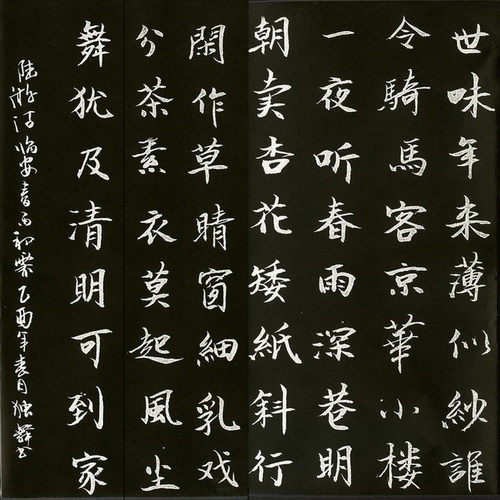 世味年来薄似紗誰
令騎馬客京華小楼
一夜听春雨深巷明
朝卖杏花矮紙斜行
閑作草晴窗細乳戏
分茶素衣莫起風尘
舞犹及清明可到家
陆游诗临安春雨初霁乙酉年春月独舞书